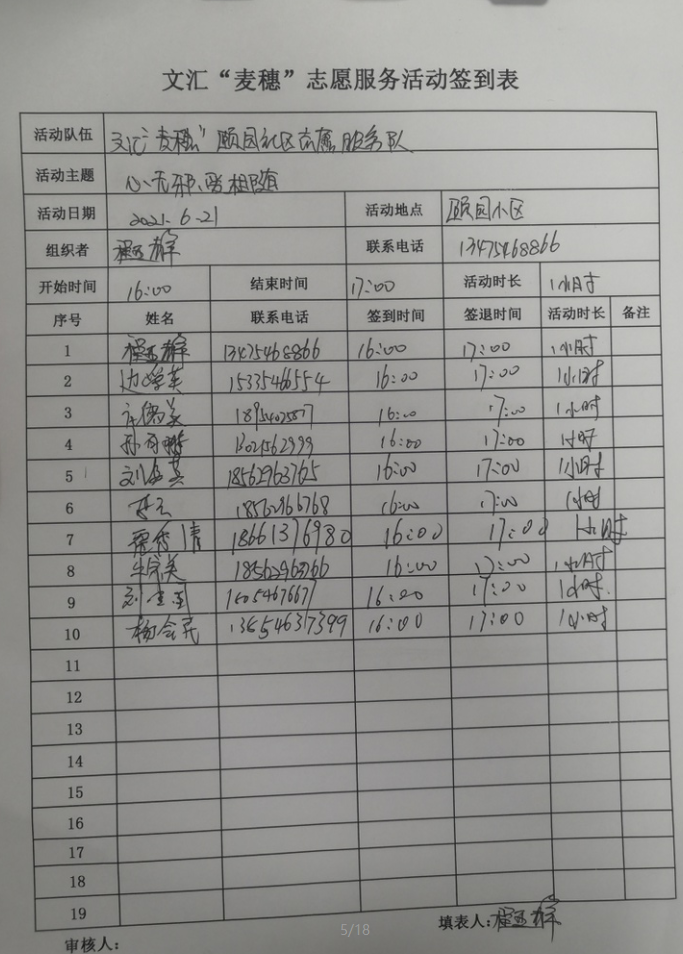 文汇“麦穗”志愿服务活动签到表
活动队伍 文汇“麦穗”颐园社区志愿服务队
活动主题 心无邪、爱相随
活动日期 2021.6.21 活动地点 颐园小区
组织者 联系电话 13475468866
开始时间 16:00 结束时间 17:00 活动时长 1小时
序号 姓名 联系电话 签到时间 签退时间 活动时长 备注
1 13475468866 16:00 17:00 1小时
2 15335466554 16:00 17:00 1小时
3 16:00 17:00 1小时
4 16:00 17:00 1小时
5 18562963765 16:00 17:00 1小时
6 18562966768 16:00 17:00 1小时
7 18661376980 16:00 17:00 1小时
8 18562963766 16:00 17:00 1小时
9 16:00 17:00 1小时
10 杨会民 13654637399 16:00 17:00 1小时
11
12
13
14
15
16
17
18
19
填表人:
审核人:
5/18